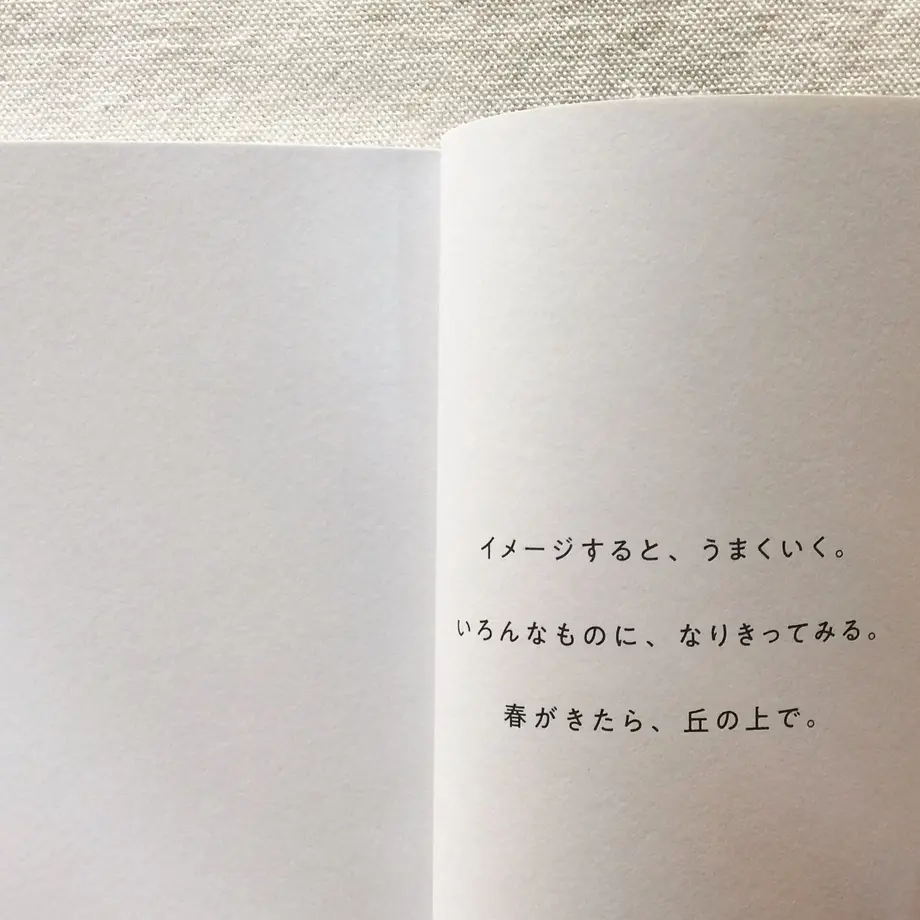 イメージすると、うまくいく。
いろんなものに、なりきってみる。
春がきたら、丘の上で。